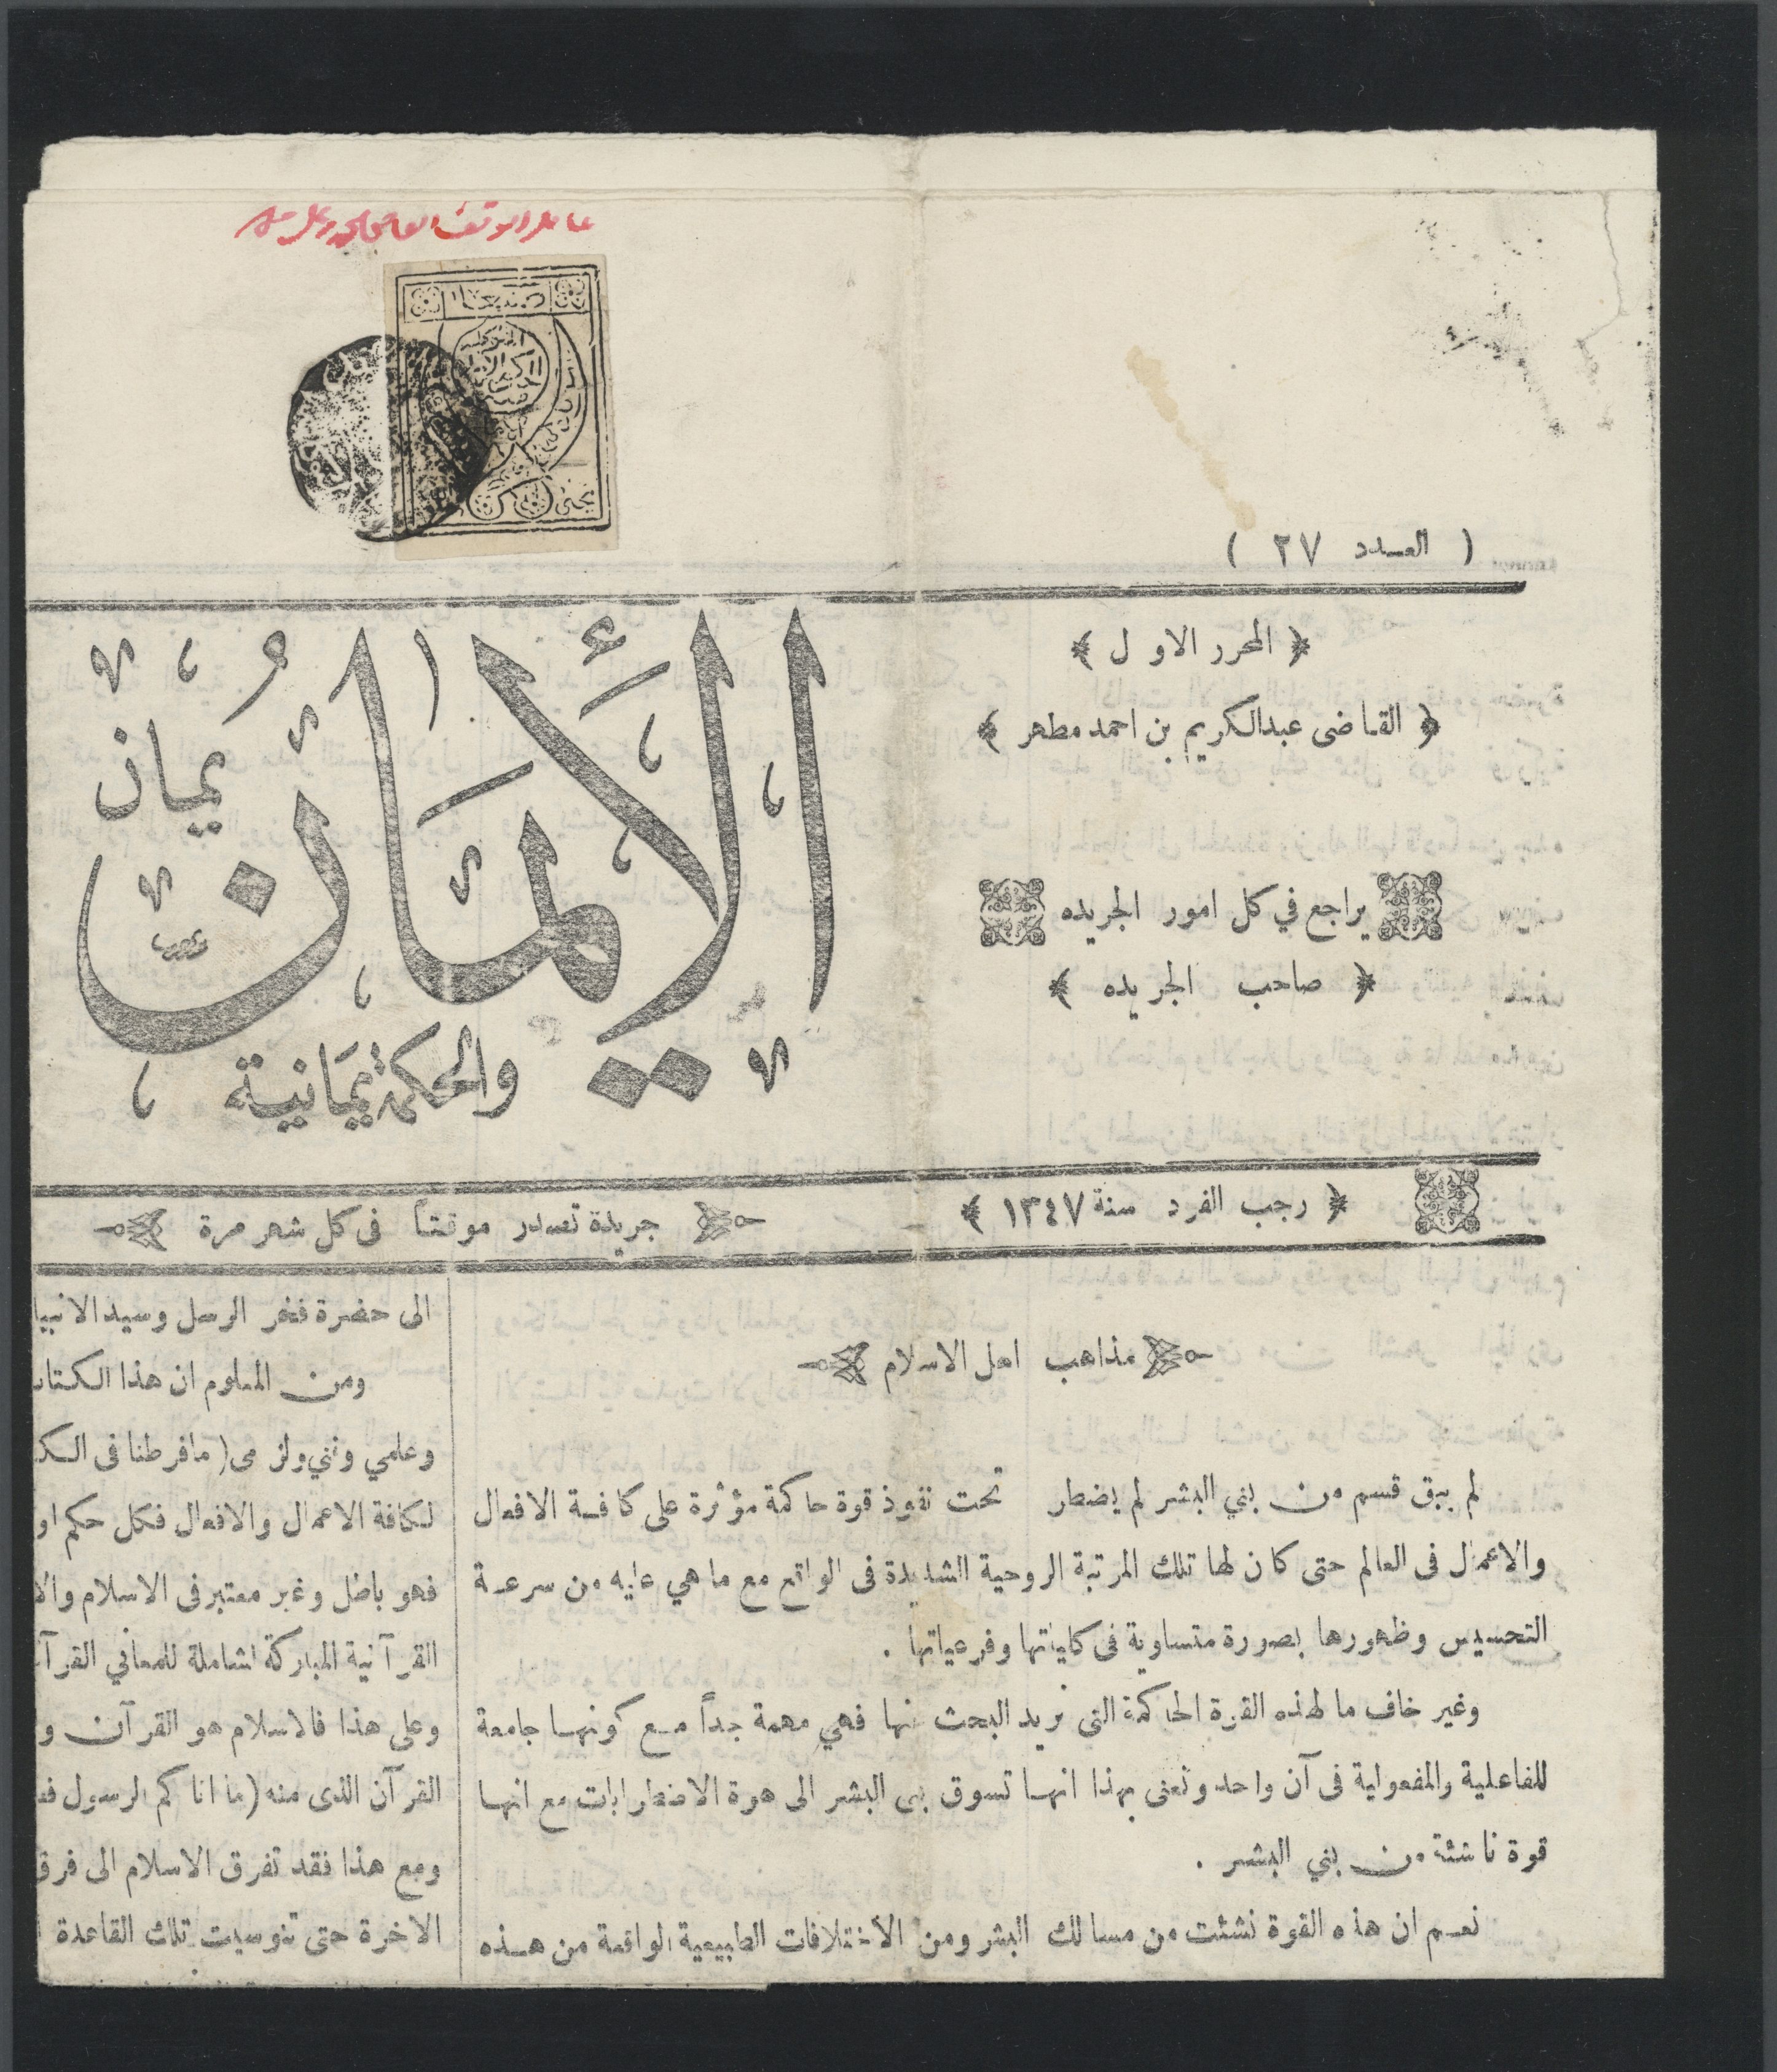 صنعا
( العدد ٢٧ )
﴿ المحرر الاول ﴾
﴿ القاضى عبدالكريم بن احمد مطهر ﴾
يراجع في كل امور الجريده
﴿ صاحب الجريده ﴾
الإيمان
يمان
والحكمة يمانية
﴿ رجب الفرد سنة ١٣٤٧ ﴾
جريدة تصدر موقتاً فى كل شهر مرة
مذاهب اهل الاسلام
لم يبق قسم من بني البشر لم يضطر تحت نفوذ قوة حاكمة مؤثرة على كافة الافعال
والاعمال فى العالم حتى كان لها تلك المرتبة الروحية الشديدة فى الواقع مع ما هي عليه من سرعة
التحسيس وظهورها بصورة متساوية فى كلياتها وفرعياتها .
وغير خاف ما لهذه القوة الحاكمة التى نريد البحث عنها فهي مهمة جداً مع كونها جامعة
للفاعلية والمفعولية فى آن واحد ونعنى بهذا انها تسوق بنى البشر الى هوة الاضطرابات مع انها
قوة ناشئة من بني البشر .
نعم ان هذه القوة نشئت من مسالك البشر ومن الاختلافات الطبيعية الواقعة من هذه
الى حضرة فخر الرسل وسيد الانبيا
ومن المعلوم ان هذا الكتاب
وعلمي وفني ( مافرطنا فى الك
لكافة الاعمال والافعال فكل حكم او
فهو باطل وغير معتبر فى الاسلام والا
القرآنية المباركة الشاملة للمعاني القرآ
وعلى هذا فالاسلام هو القرآن و
القرآن الذى منه ( ما اتاكم الرسول فخ
ومع هذا فقد تفرق الاسلام الى فرق
الاخرة حتى تنوسيت تلك القاعدة